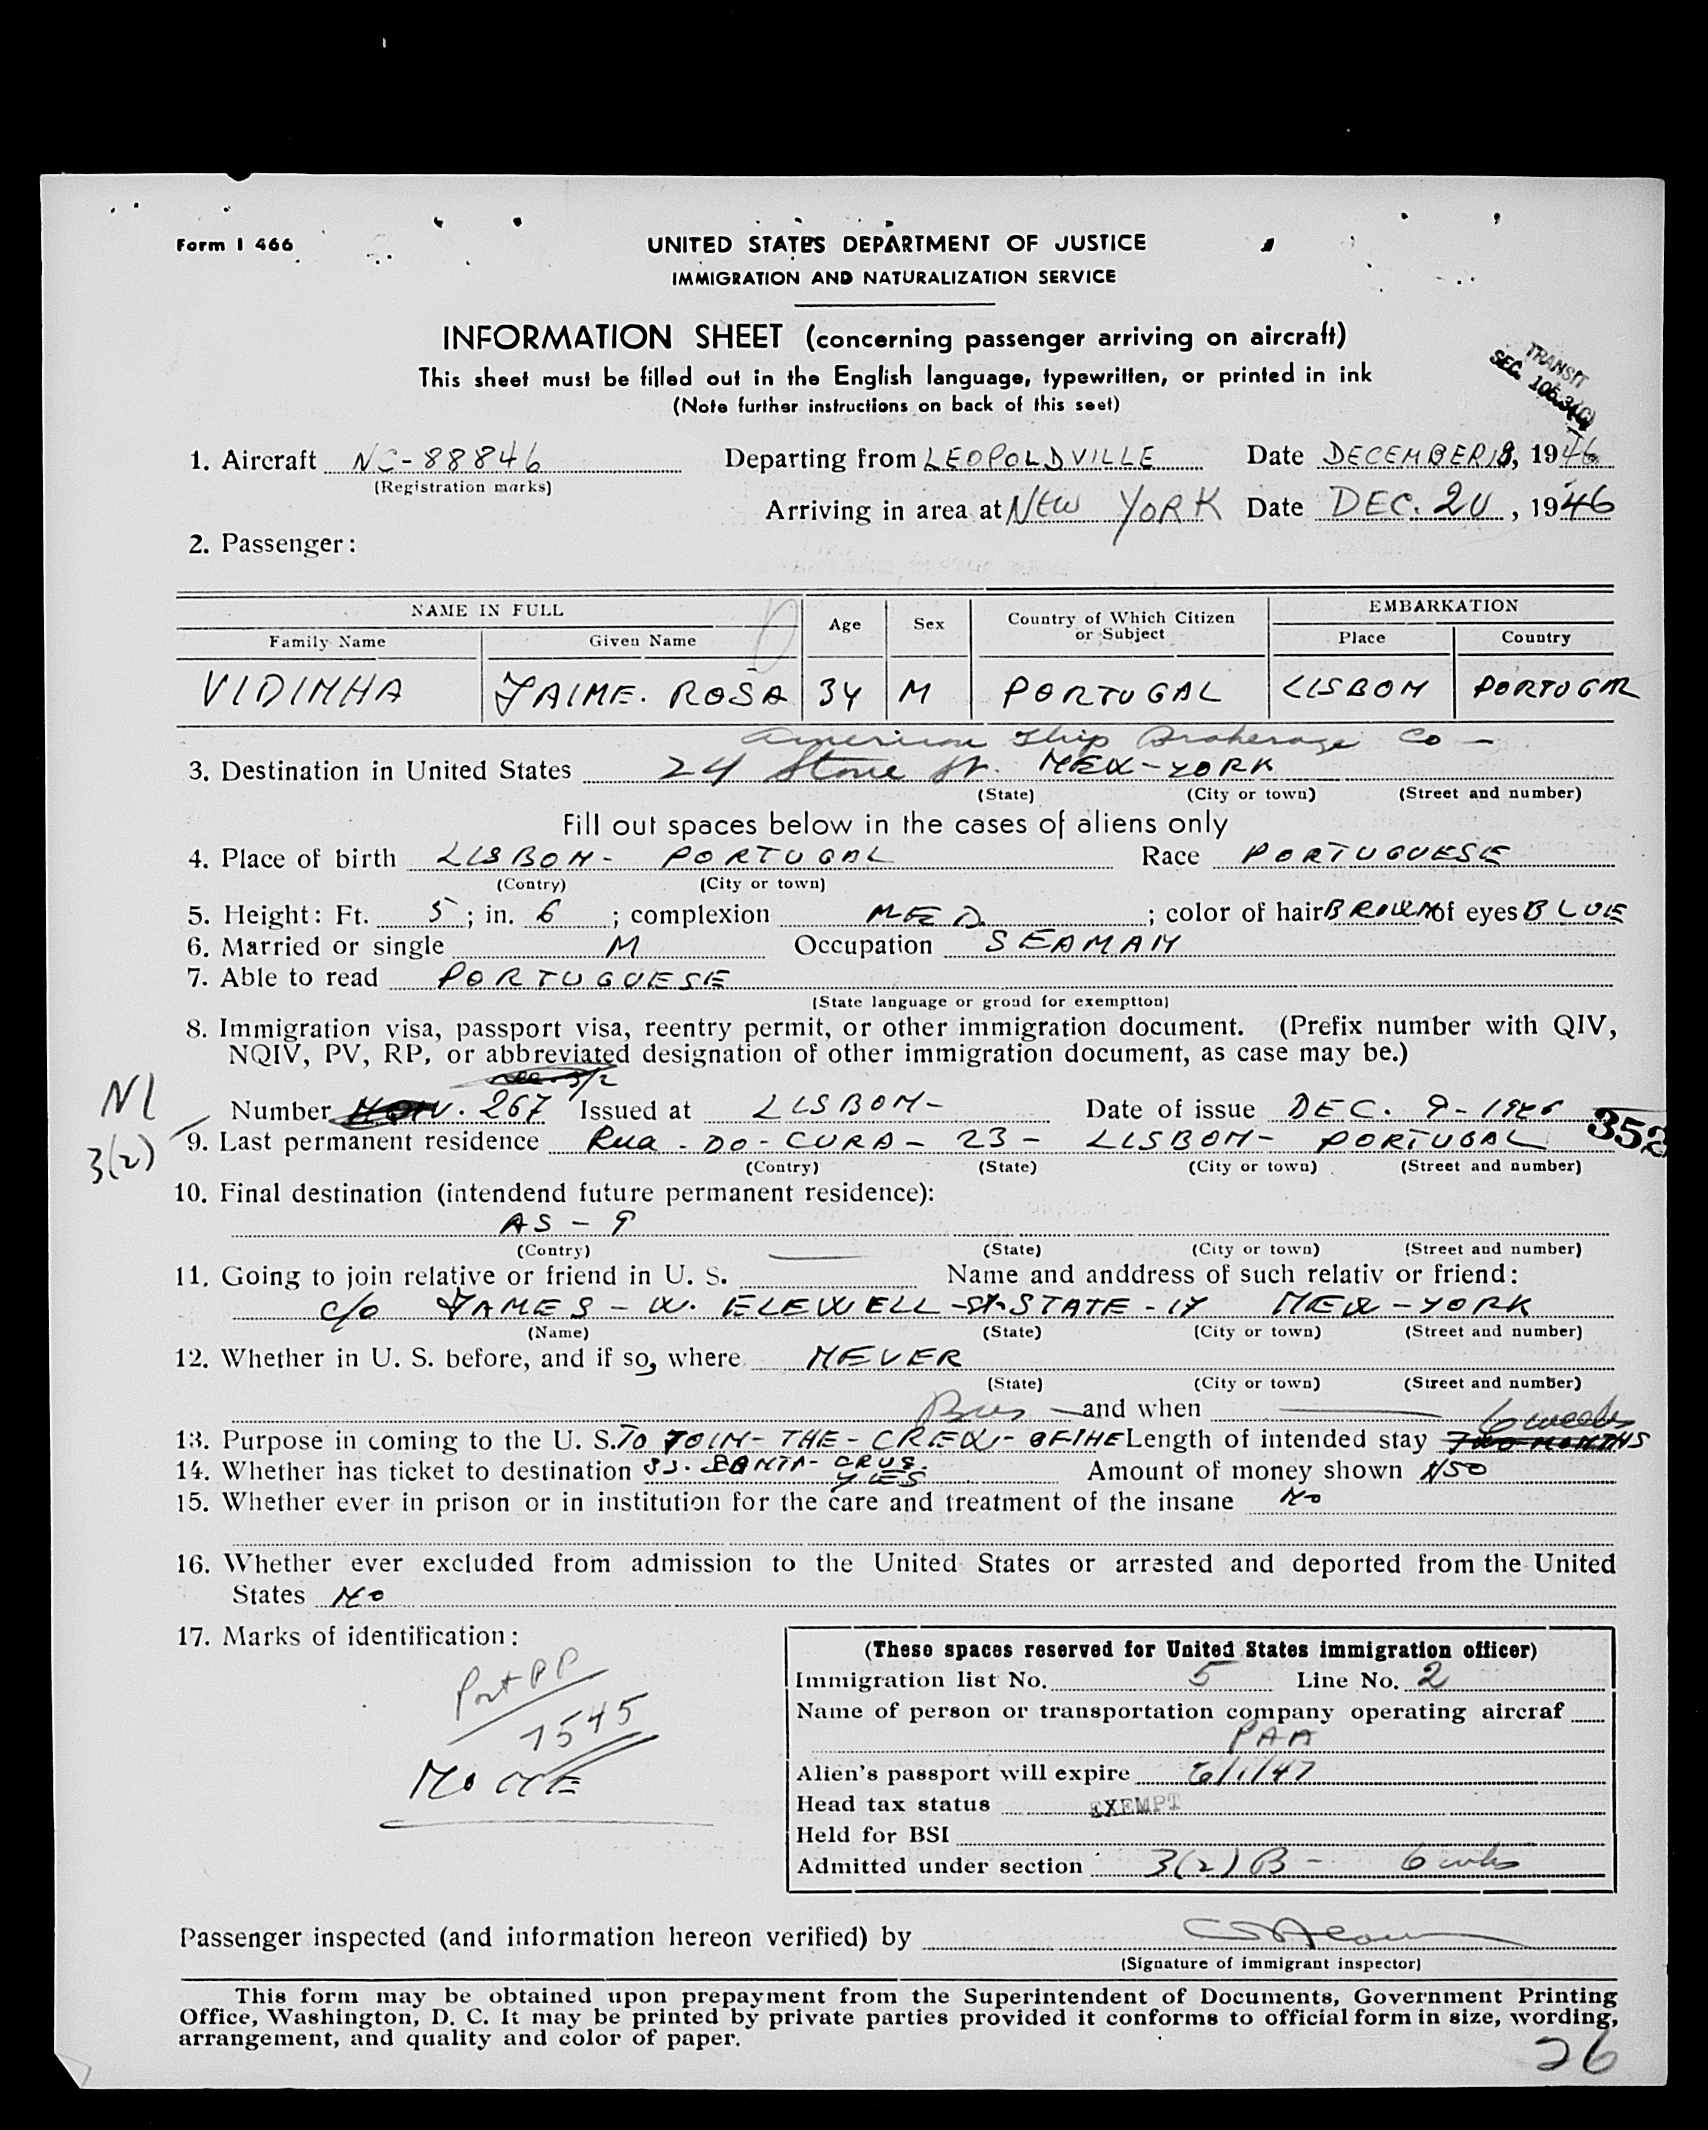 Form I 466
UNITED STATES DEPARTMENT OF JUSTICE
IMMIGRATION AND NATURALIZATION SERVICE
INFORMATION SHEET (concerning passenger arriving on aircraft)
This sheet must be filled out in the English language, typewritten, or printed in ink
(Note further instructions on back of this seet)
TRANSIT
SEC. 105.3(C)
1. Aircraft NC-88846 Departing from LEOPOLDVILLE Date DECEMBER 18, 1946
(Registration marks)
Arriving in area at New YORK Date DEC. 20, 1946
2. Passenger:
NAME IN FULL Age Sex Country of Which Citizen or Subject EMBARKATION
Family Name Given Name Place Country
VIDINHA JAIME. ROSA 34 M PORTUGAL LISBON PORTUGAL
American Ship Brokerage Co -
3. Destination in United States 24 Stone St. NEW-YORK
(State) (City or town) (Street and number)
Fill out spaces below in the cases of aliens only
4. Place of birth LISBON- PORTUGAL Race PORTUGUESE
(Contry) (City or town)
5. Height: Ft. 5; in. 6; complexion MED; color of hair BROWN of eyes BLUE
6. Married or single M Occupation SEAMAN
7. Able to read PORTUGUESE
(State language or groud for exemptton)
8. Immigration visa, passport visa, reentry permit, or other immigration document. (Prefix number with QIV,
NQIV, PV, RP, or abbreviated designation of other immigration document, as case may be.)
NI
3(2)
Number V. 267 Issued at LISBON- Date of issue DEC. 9-1946
352
9. Last permanent residence Rua-DO-CURA-23- LISBON- PORTUGAL
(Contry) (State) (City or town) (Street and number)
10. Final destination (intendend future permanent residence):
AS-9
(Contry) (State) (City or town) (Street and number)
11. Going to join relative or friend in U. S. Name and anddress of such relativ or friend:
c/o JAMES-W. ELEWELL-ST-STATE-17 NEW-YORK
(Name) (State) (City or town) (Street and number)
12. Whether in U. S. before, and if so, where NEVER
(State) (City or town) (Street and number)
Bus and when 6 weeks
13. Purpose in coming to the U. S. TO JOIN-THE-CREW-OF THE Length of intended stay TWO MONTHS
14. Whether has ticket to destination SS. SANTA-CRUS. YES Amount of money shown $50
15. Whether ever in prison or in institution for the care and treatment of the insane No
16. Whether ever excluded from admission to the United States or arrested and deported from the United
States No
17. Marks of identification:
Port PP
1545
NONE
(These spaces reserved for United States immigration officer)
Immigration list No. 5 Line No. 2
Name of person or transportation company operating aircraf
PAA
Alien's passport will expire 6/1/47
Head tax status EXEMPT
Held for BSI
Admitted under section 3(2) B- 6 wks
Passenger inspected (and information hereon verified) by
(Signature of immigrant inspector)
This form may be obtained upon prepayment from the Superintendent of Documents, Government Printing
Office, Washington, D. C. It may be printed by private parties provided it conforms to official form in size, wording,
arrangement, and quality and color of paper.
26